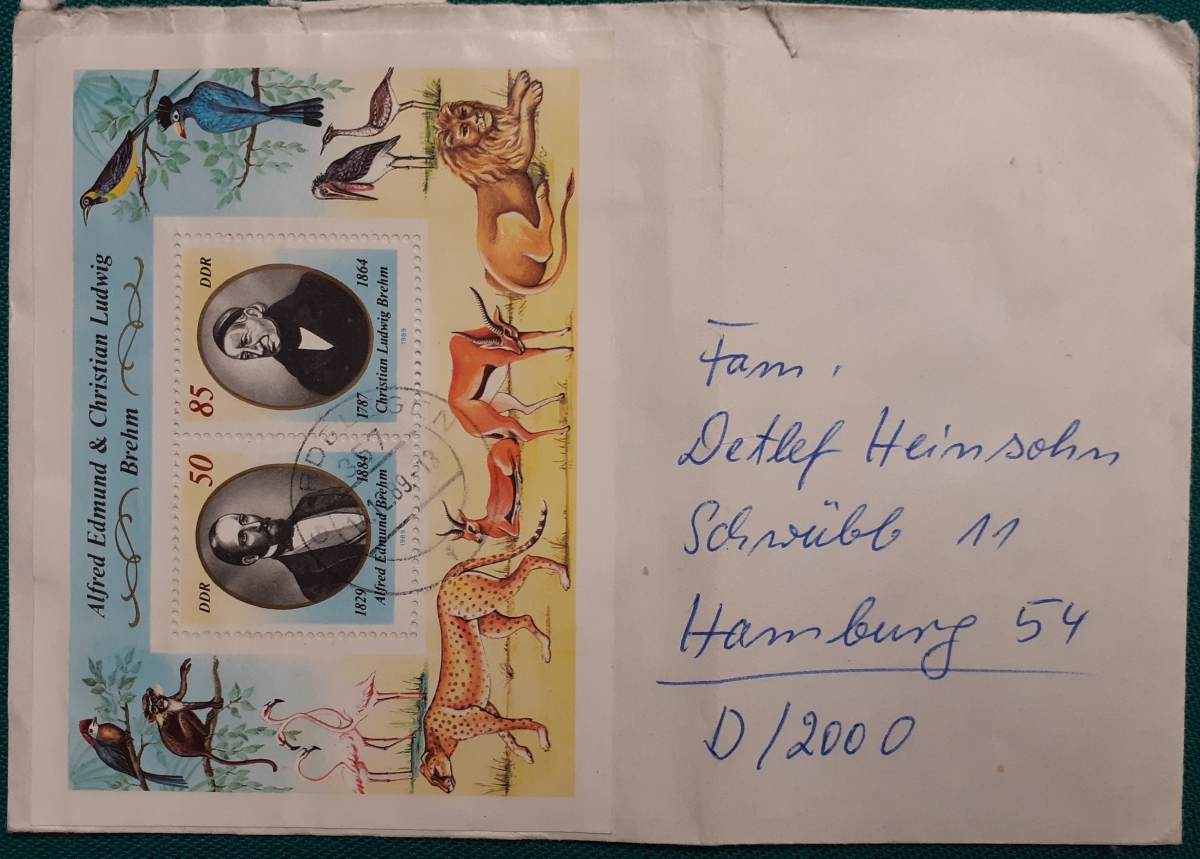 Alfred Edmund & Christian Ludwig
Brehm
50
DDR
1829 1884
Alfred Edmund Brehm
1989
85
DDR
1787 1864
Christian Ludwig Brehm
1989
Fam.
Detlef Heinsohn
Schwübb 11
Hamburg 54
D/2000